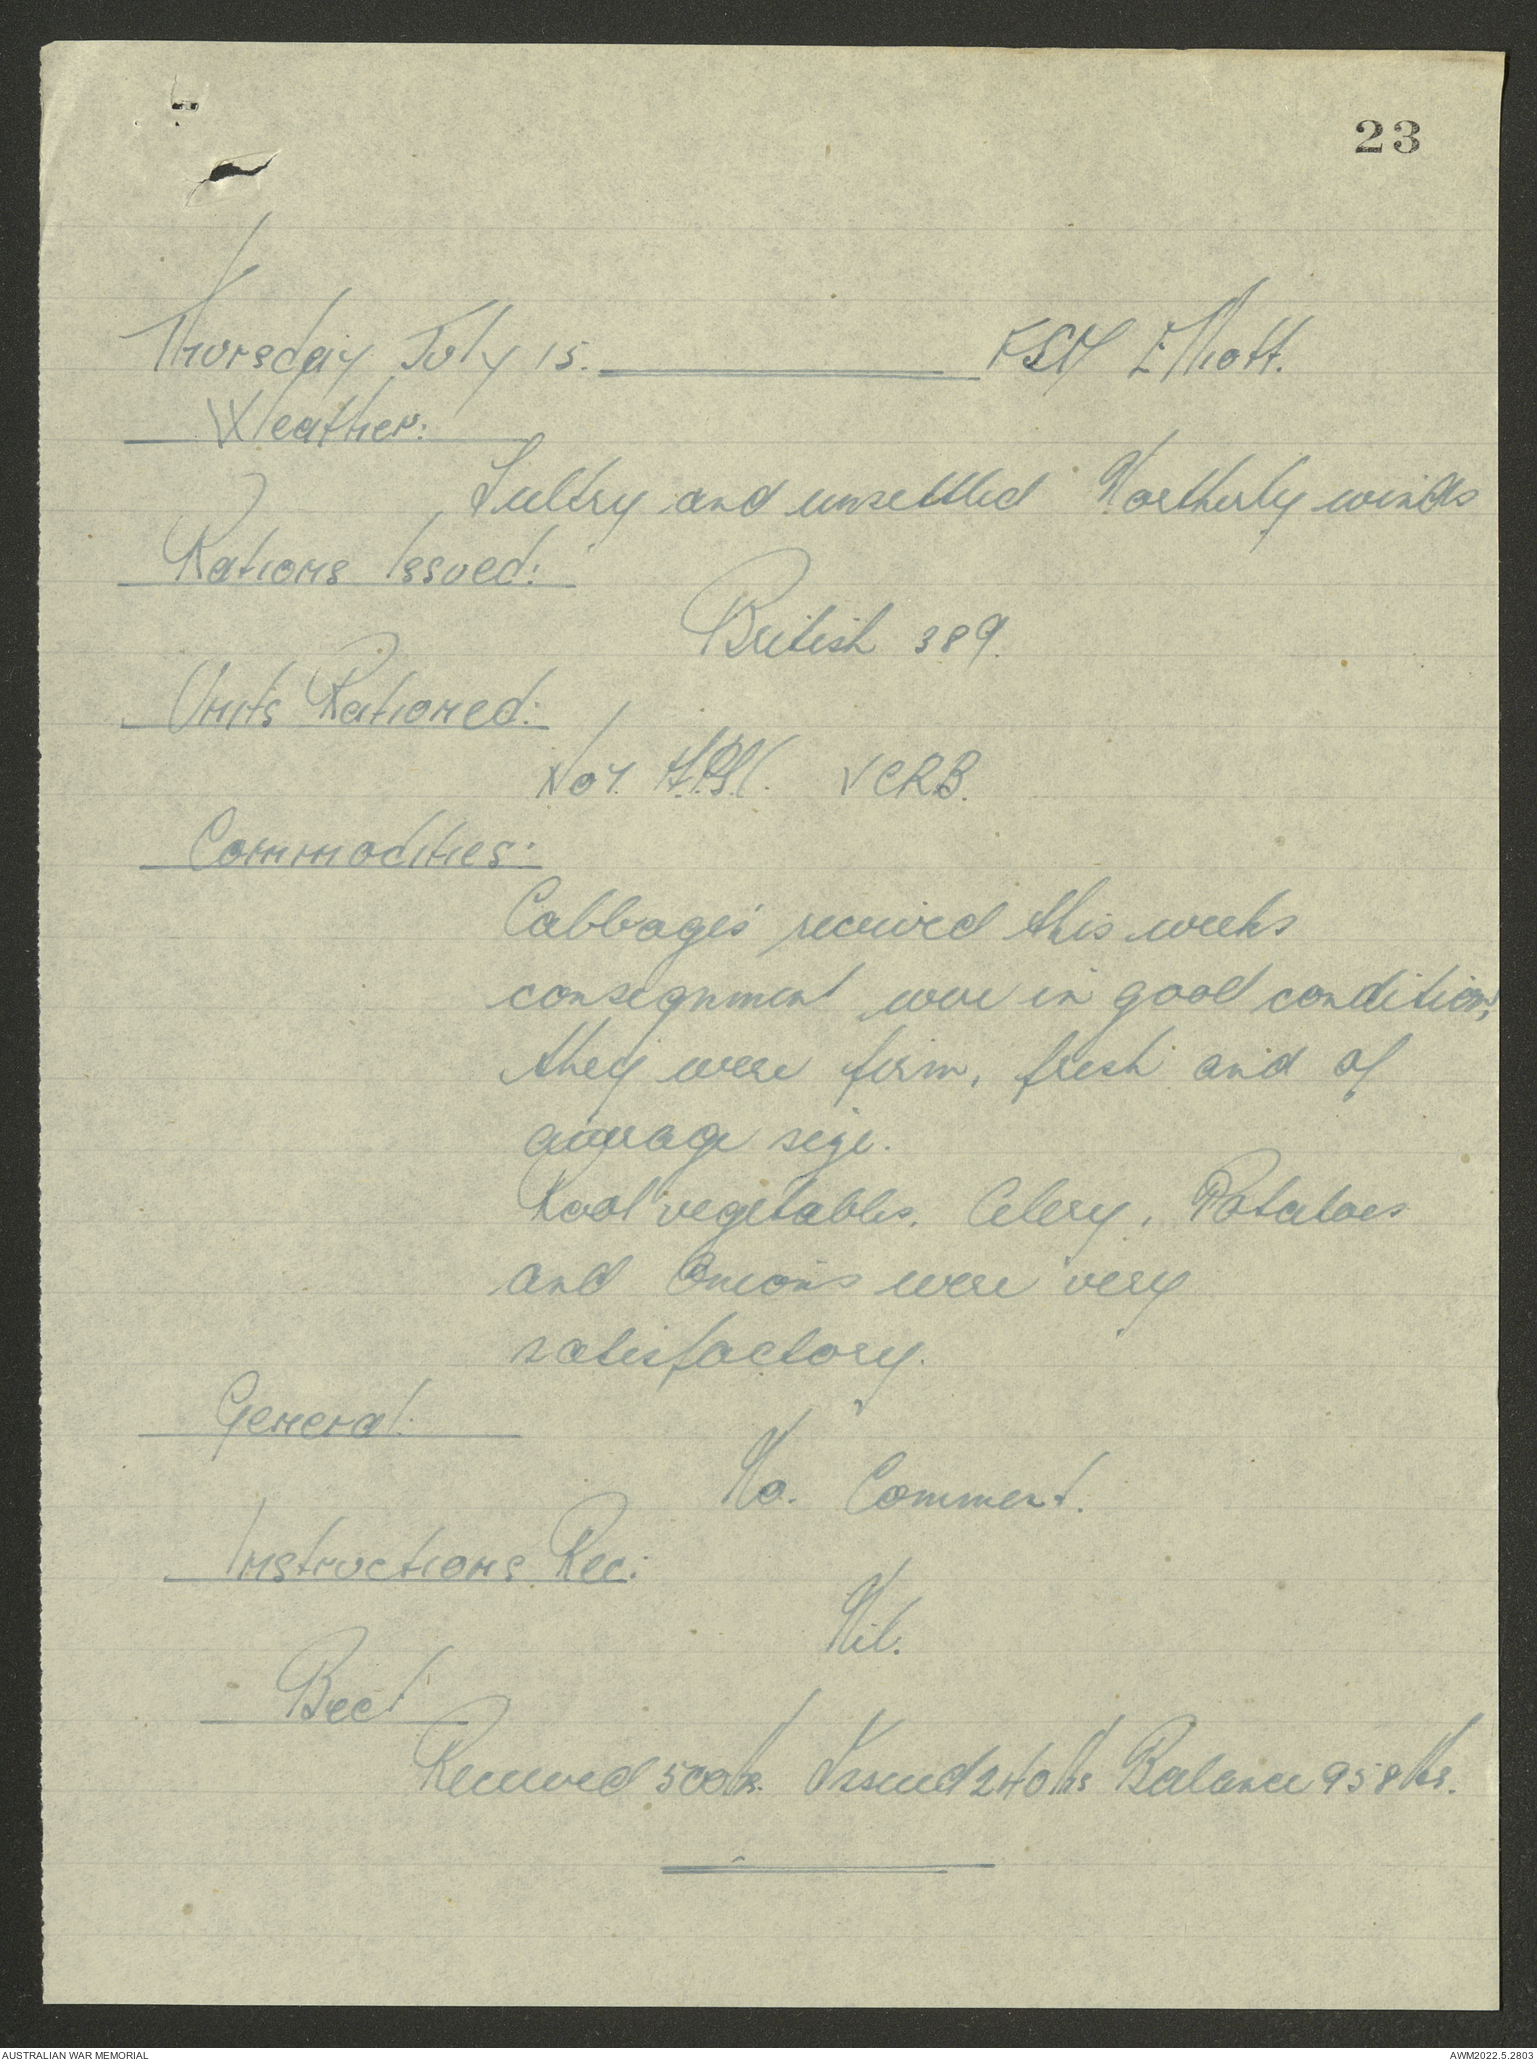 23
Thursday July 15. FSM Elliott.
Weather:
Sultry and unsettled Northerly winds
Rations Issued:
British 389.
Units Rationed:
No 1. VCRB.
Commodities:
Cabbages received this weeks
consegnment were in good condition,
they were firm, fresh and of
average size.
Root vegetables, Celery, Potatoes
and Onions were very
satisfactory.
General:
No. Comment.
Instructions Rec:
Nil.
Beef
Received 500 lbs. Issued 240 lbs Balance 958 lbs.
AUSTRALIAN WAR MEMORIAL
AWM2022.5.2803